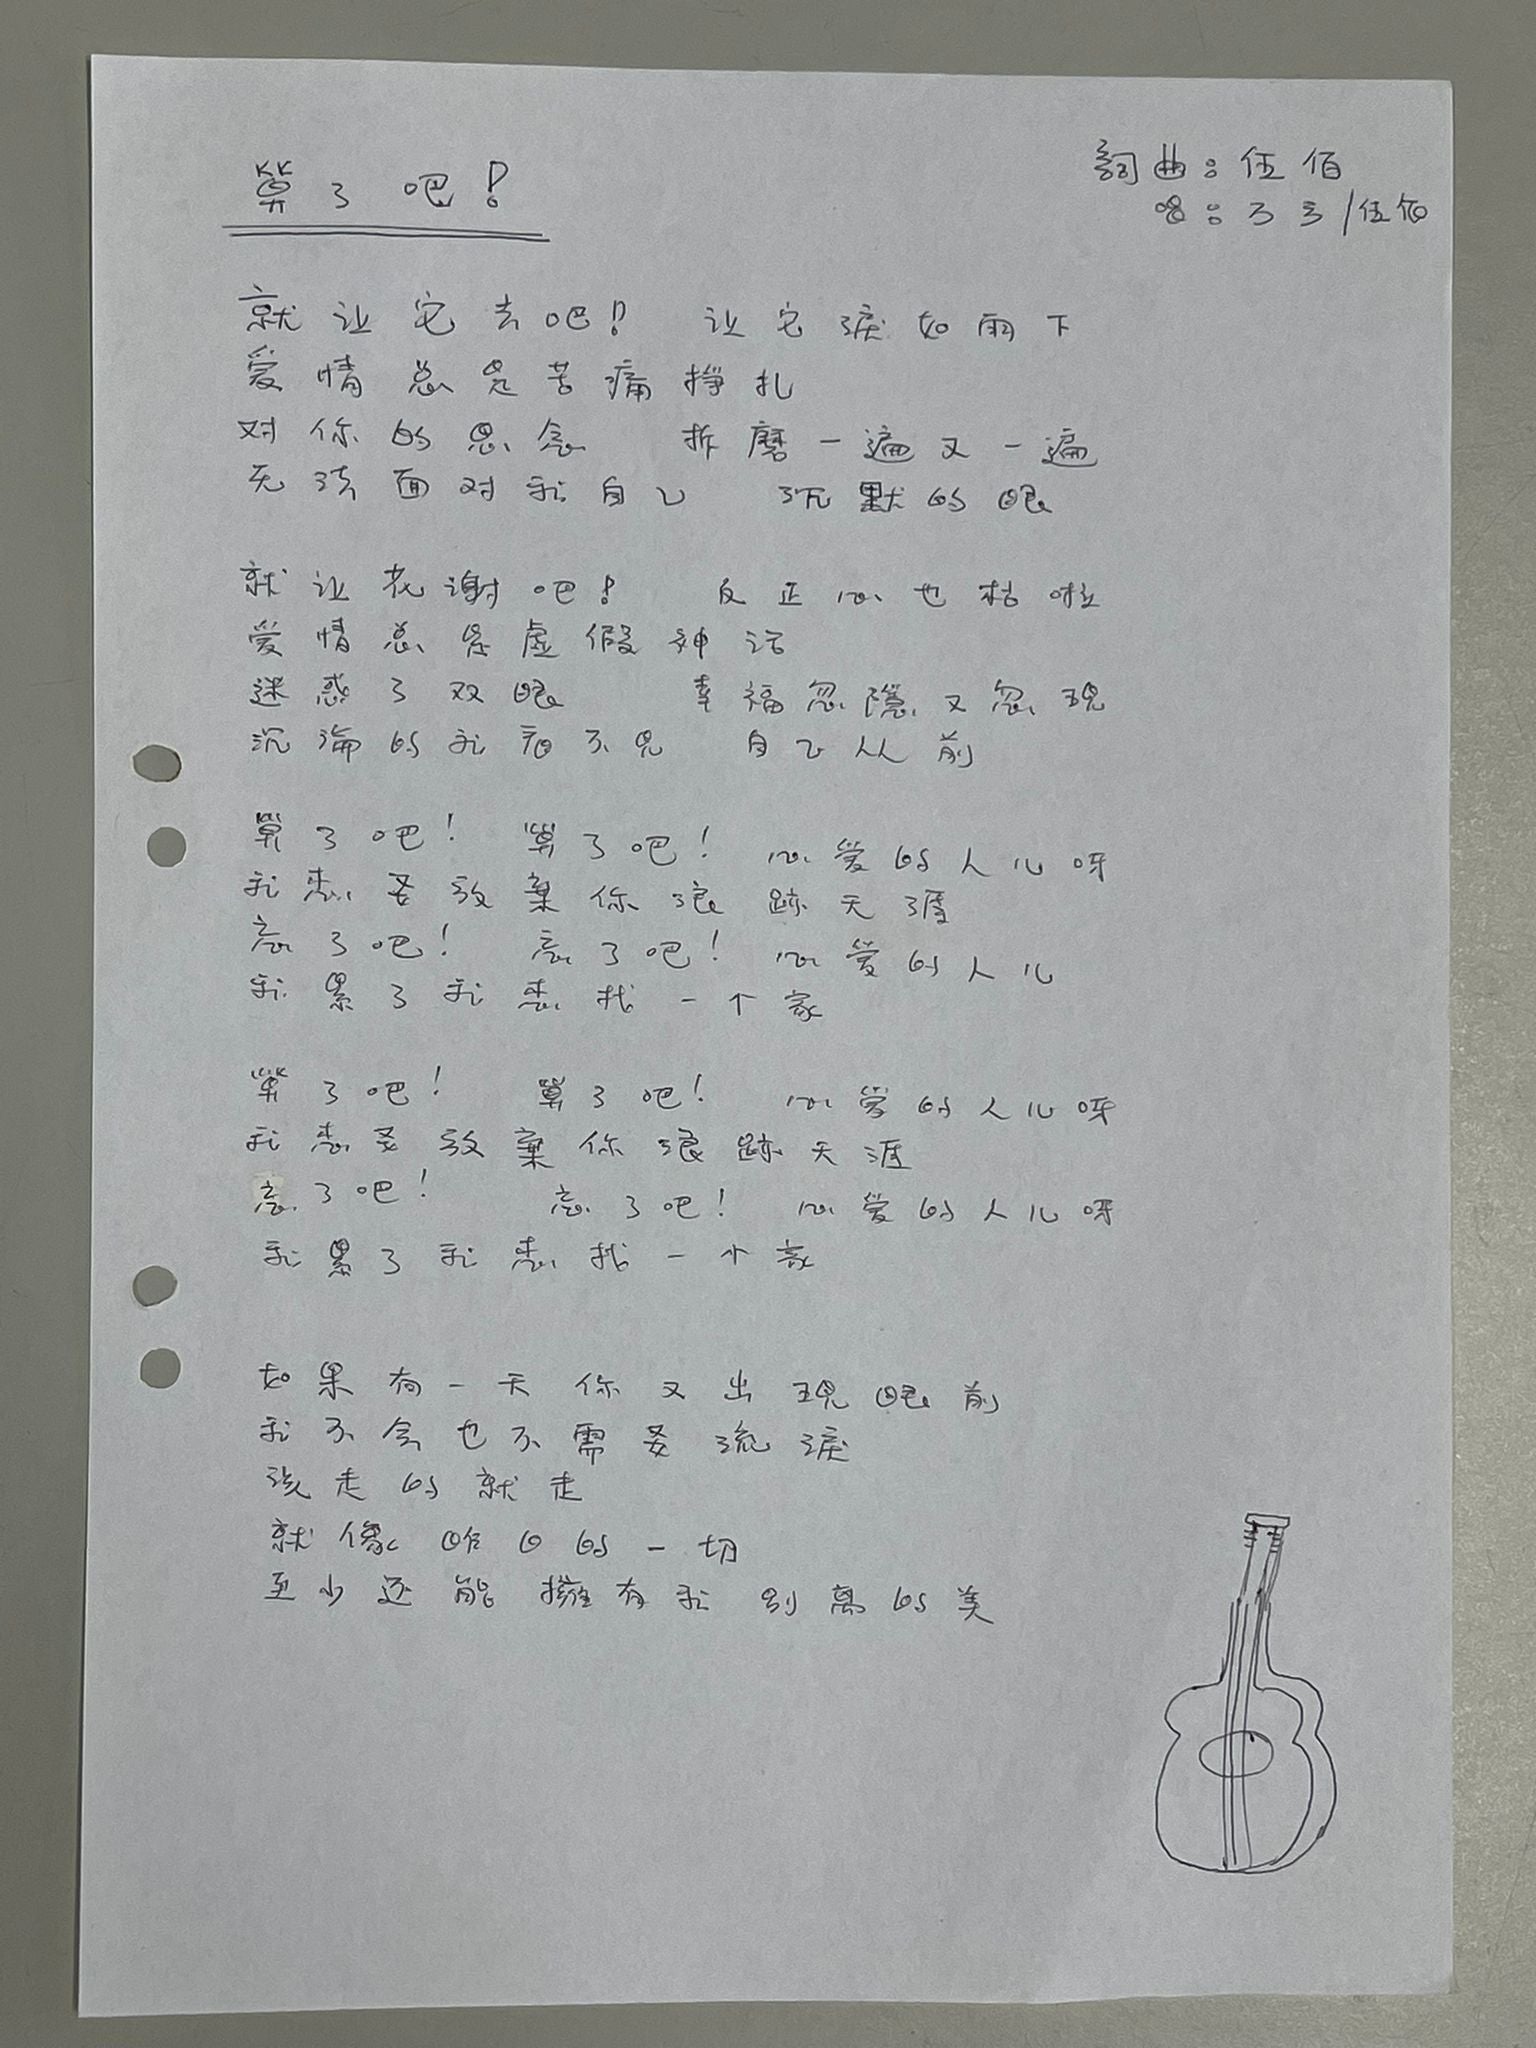 算了吧!
詞曲:伍佰
唱:万芳/伍佰
就让它去吧! 让它淚如雨下
爱情总是苦痛挣扎
对你的思念 折磨一遍又一遍
无法面对我自己 沉默的眼
就让花谢吧! 反正心也枯啦
爱情总是虚假神话
迷惑了双眼 幸福忽隱又忽现
沉淪的我看不见 自己从前
算了吧! 算了吧! 心爱的人儿呀
我想要放棄你浪跡天涯
忘了吧! 忘了吧! 心爱的人儿
我累了我想找一个家
算了吧! 算了吧! 心爱的人儿呀
我想要放棄你浪跡天涯
忘了吧! 忘了吧! 心爱的人儿呀
我累了我想找一个家
如果有一天你又出现眼前
我不会也不需要流淚
说走的就走
就像昨日的一切
至少还能擁有我别离的美